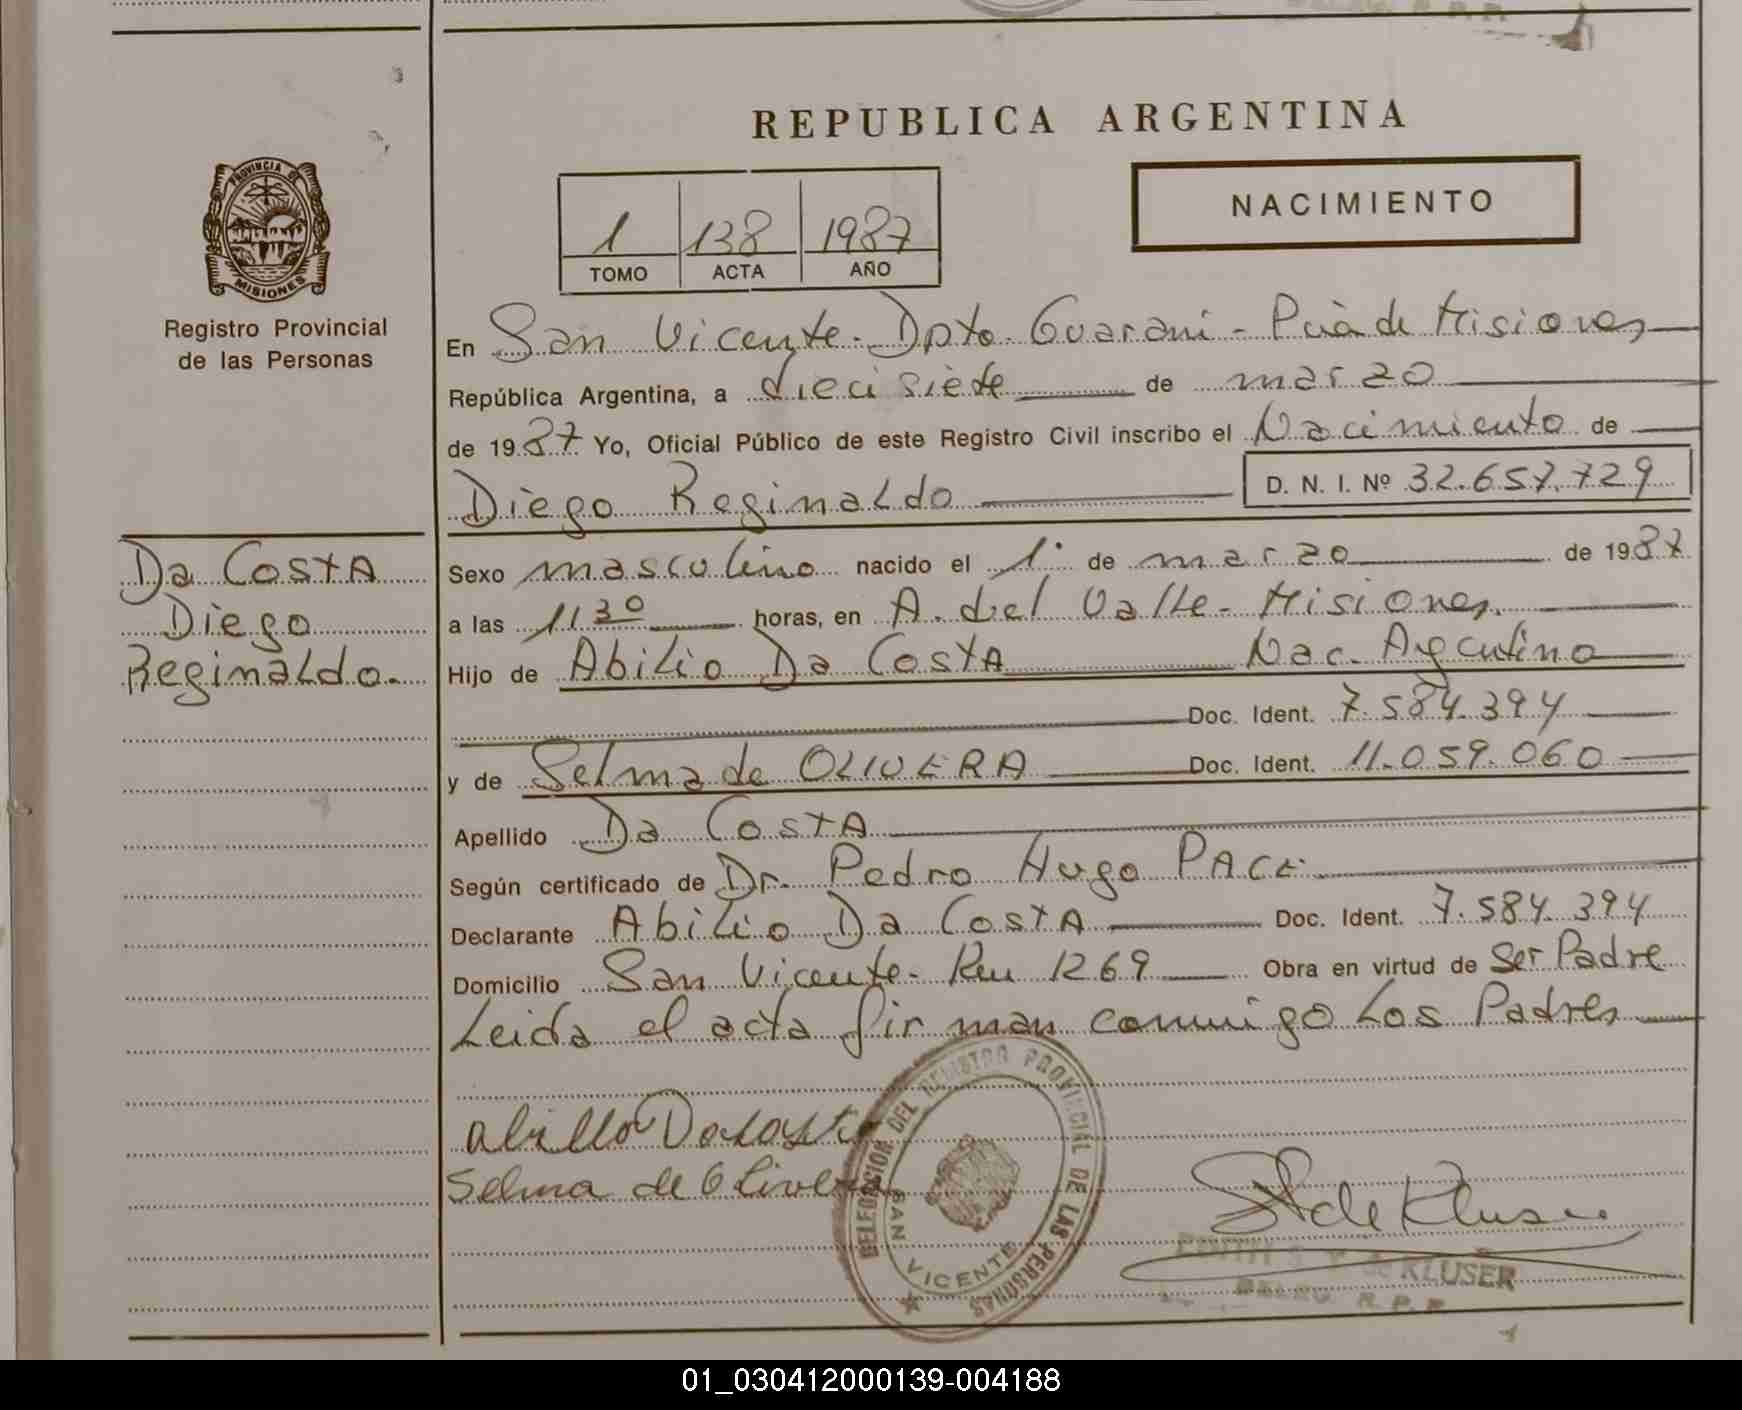 REPUBLICA ARGENTINA
PROVINCIA DE
MISIONES
Registro Provincial
de las Personas
1 138 1987
TOMO ACTA AÑO
NACIMIENTO
En San Vicente. Dpto. Guarani - Pcia de Misiones
República Argentina, a dieci siete de marzo
de 1987 Yo, Oficial Público de este Registro Civil inscribo el Nacimiento de
Diego Reginaldo D. N. I. Nº 32.657.729
Da Costa
Diego
Reginaldo.
Sexo masculino nacido el 1° de marzo de 1987
a las 11 30 horas, en A. del Valle - Misiones.
Hijo de Abilio Da Costa Nac. Argentino
Doc. Ident. 7.584.394
y de Selma de OLIVERA Doc. Ident. 11.059.060
Apellido Da Costa
Según certificado de Dr. Pedro Hugo PACE
Declarante Abilio Da Costa Doc. Ident. 7.584.394
Domicilio San Vicente - 1269 Obra en virtud de Ser Padre
Leida el acta firman conmigo Los Padres
DELEGACION DEL REGISTRO PROVINCIAL DE LAS PERSONAS
SAN VICENTE
Selma de Olivera
de Kluser
EDITH S. de KLUSER
R. P. P.
01_030412000139-004188